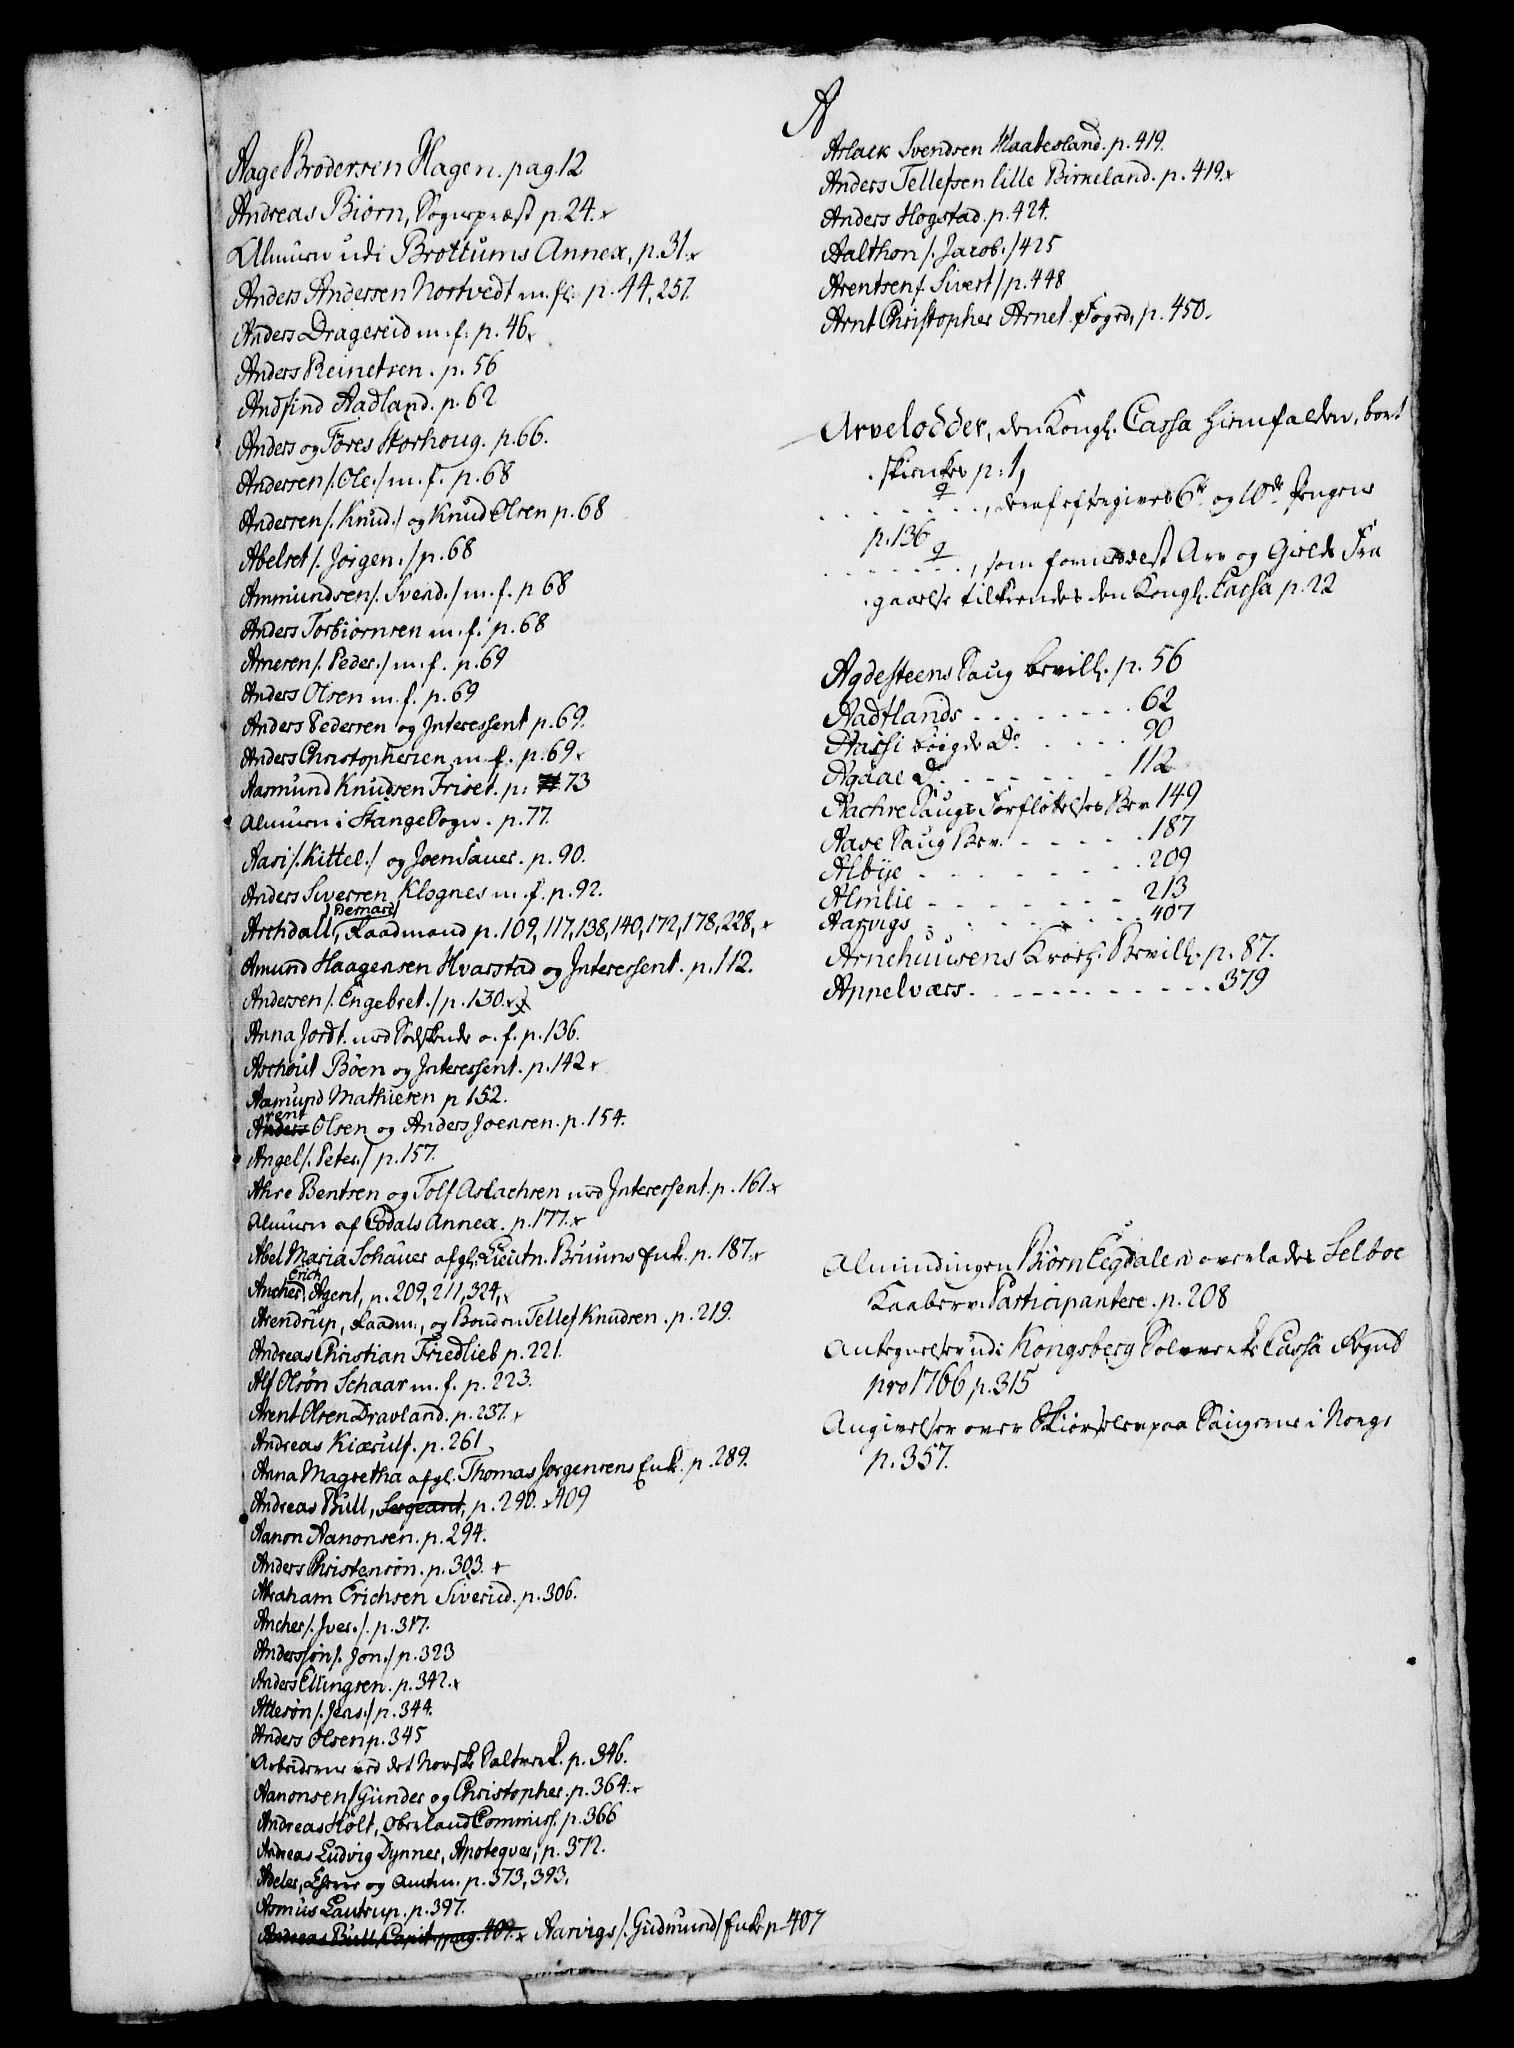 A
Aage Brodersen Hagen. pag. 12
Andreas Biørn, Sognepræst p. 24.
Almuen udi Brottums Annex, p. 31.
Anders Andersen Nortvedt m. fl. p. 44, 257.
Anders Dragereid m. f: p. 46.
Anders Reinetsen. p. 56
Andfind Aadland. p. 62
Anders og Tores Storhoug. p. 66.
Andersen /: Ole :/ m. f. p. 68
Andersen /: Knud :/ og Knud Olsen p. 68
Abelset /: Jørgen :/ p. 68
Ammundsen /: Svend :/ m. f. p 68
Anders Torbiørnsen m. f. p. 68
Arnesen /: Peder :/ m. f. p. 69
Anders Olsen m. f. p. 69
Anders Pedersen og Interessent p. 69.
Anders Christophersen m. f. p. 69
Aasmund Knudsen Friset. p: 73
Almuen i Stange Sogn. p. 77.
Aasi /: Kittel :/ og Joen Sauer. p. 90.
Anders Siversen Klognes m. f. p. 92.
Archdall, /Bernard/ Raadmand p. 109, 117, 138, 140, 172, 178, 228,
Amund Haagensen Hvarstad og Interessent. p. 112.
Andersen /: Engebret :/ p. 130.
Anna Jordt. med Sødskende o. f. p. 136.
Aschout Böen og Interessent. p. 142
Aamund Mathiesen p 152.
Arent Olsen og Anders Joensen. p. 154.
Angel /: Peter :/ p. 157.
Ahre Bentsen og Tolf Aslachsen med Interessent. p. 161.
Almuen af Eodals Annex. p. 177.
Abel Maria Schauer afgl. Lieutn. Bruuns Enke. p. 187.
Ancher, Erich Agent, p. 209, 211, 324,
Arendrup, Raadm:, og Bonden Tellef Knudsen. p. 219.
Andreas Christian Friedlieb p. 221.
Alf Olsøn Schaar m. f. p. 223.
Arent Olsen Dravland. p. 237.
Andreas Kiærulf. p. 261
Anna Magretha afgl. Thomas Jørgensens Enke. p. 289.
Andreas Bull, Sergeant, p. 290. 409
Aanon Aanonsen. p. 294.
Anders Christensøn. p. 303.
Abraham Erichsen Siverud. p. 306.
Ancher /: Iver :/ p. 317.
Anderssøn /: Jon :/ p. 323
Anders Ellingsen. p. 342.
Attesøn /: Jens :/ p. 344.
Anders Olsen p. 345
Arbeiderne ved det Norske Saltverk. p. 346.
Aanonsen /Gunder og Christopher. p. 364.
Andreas Holt, Oberland Commiss. p. 366
Andreas Ludvig Dynner, Apoteqver, p. 372.
Adeler, Etsrr og Amtm. p. 373, 393.
Asmus Lautrup. p. 397.
Andreas Bull, Capit, pag. 409. Aarvigs /: Gudmund/ Enke p 407
Aslack Svendsen Haabesland. p. 419.
Anders Tellefsen lille Birkeland. p. 419.
Anders Hogstad. p. 424.
Aalthon /: Jacob :/ 425
Arentsen /: Sivert / p. 448
Arnt Christopher Arnet Foged, p. 450.
Arvelodder, den Kongl. Cassa hiemfalden, bort
skienkes p: 1,
, deraf eftergives 6te og 10de Pengene
p. 136
, som formedelst Arv og Gields Fra
gaaelse tilkiendes den Kongl. Cassa p. 22
Agdesteens Saug bevill. p. 56
Aadtlands . . . . . . . 62
Aassi Do . . . . 90
Agdal Do . . . . . . 112
Aachre Saugs Forfløtelses Bev 149
Aase Saug Bev. . . . . . 187
Albye . . . . . . . . 209
Almlie . . . . . . . 213
Aarvigs . . . . . . . 407
Arnehuusens Kværh. Bevill. p. 87.
Annelværs . . . . . . . . 379
Almindingen Biørn Eegdalen overlades Selboe
Kaaberv. Participantere. p. 208
Antegnelser udi Kongsberg Solverks Cassa Regnsk
pro 1766 p. 315
Angivelser over Skiørselen paa Saugene i Norge
p. 357.